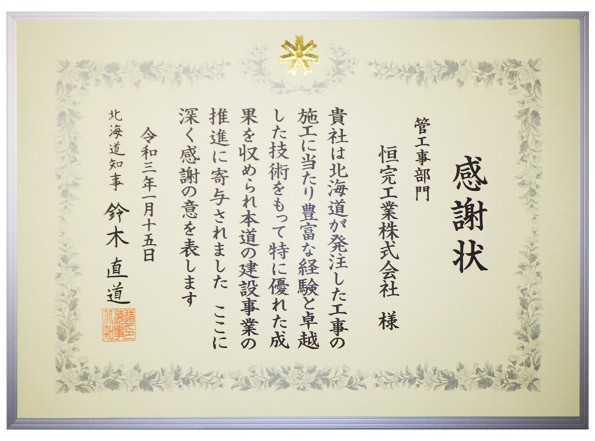 感謝状
管工事部門
恒完工業株式会社 様
貴社は北海道が発注した工事の
施工に当たり豊富な経験と卓越
した技術をもって特に優れた成
果を収められ本道の建設事業の
推進に寄与されました ここに
深く感謝の意を表します
令和三年一月十五日
北海道知事 鈴木直道